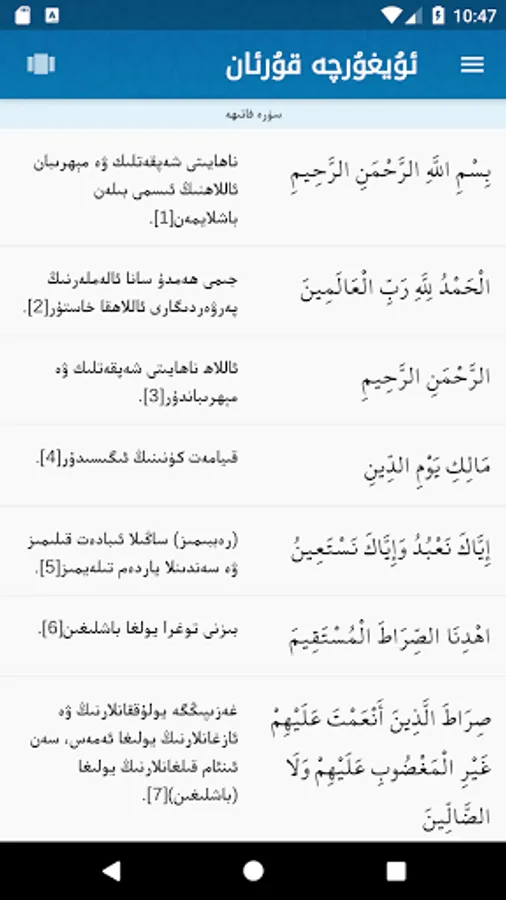 10:47
ئۇيغۇرچە قۇرئان
سۈرە فاتىھە
بِسْمِ اللَّهِ الرَّحْمَنِ الرَّحِيمِ
ناھايىتى شەپقەتلىك ۋە مېھرىبان
ئاللاھنىڭ ئىسمى بىلەن
باشلايمەن[1].
الْحَمْدُ لِلَّهِ رَبِّ الْعَالَمِينَ
جىمى ھەمدۇ سانا ئالەملەرنىڭ
پەرۋەردىگارى ئاللاھقا خاستۇر[2].
الرَّحْمَنِ الرَّحِيمِ
ئاللاھ ناھايىتى شەپقەتلىك ۋە
مېھرىباندۇر[3].
مَالِكِ يَوْمِ الدِّينِ
قىيامەت كۈنىنىڭ ئىگىسىدۇر[4].
إِيَّاكَ نَعْبُدُ وَإِيَّاكَ نَسْتَعِينُ
(رەببىمىز) ساڭىلا ئىبادەت قىلىمىز
ۋە سەندىنلا ياردەم تىلەيمىز[5].
اهْدِنَا الصِّرَاطَ الْمُسْتَقِيمَ
بىزنى توغرا يولغا باشلىغىن[6].
صِرَاطَ الَّذِينَ أَنْعَمْتَ عَلَيْهِمْ
غَيْرِ الْمَغْضُوبِ عَلَيْهِمْ وَلَا
الضَّالِّينَ
غەزىپىڭگە يولۇققانلارنىڭ ۋە
ئازغانلارنىڭ يولىغا ئەمەس، سەن
ئىنئام قىلغانلارنىڭ يولىغا
(باشلىغىن)[7].